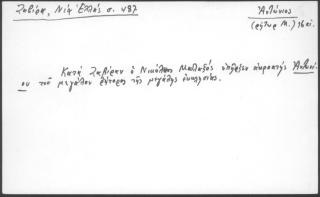 Ζαβίρα, Νέα Ἑλλάς σ. 487
Ἀντώνιος
(ρήτωρ Μ.) 16 αἰ.
Κατὰ Ζαβίραν ὁ Νικόλαος Μαλαξὸς ὑπῆρξεν ἀκροατὴς Ἀντωνί-
ου τοῦ μεγάλου ῥήτορος τῆς μεγάλης ἐκκλησίας.